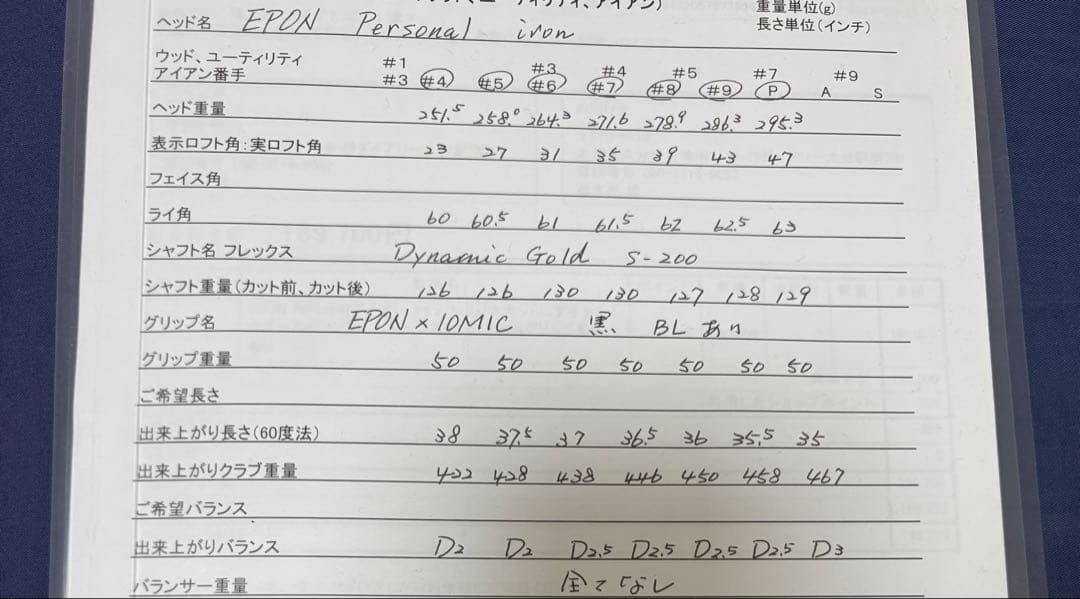 ユーティリティ、アイアン)
重量単位(g)
ヘッド名 EPON Personal iron 長さ単位(インチ)
ウッド、ユーティリティ #1 #3 #4 #5 #7 #9
アイアン番手 #3 #4 #5 #6 #7 #8 #9 P A S
ヘッド重量 251.5 258.0 264.3 271.6 278.9 286.3 295.3
表示ロフト角:実ロフト角 23 27 31 35 39 43 47
フェイス角
ライ角 60 60.5 61 61.5 62 62.5 63
シャフト名 フレックス Dynamic Gold S-200
シャフト重量(カット前、カット後) 126 126 130 130 127 128 129
グリップ名 EPON×IOMIC 黒 BLあり
グリップ重量 50 50 50 50 50 50 50
ご希望長さ
出来上がり長さ(60度法) 38 37.5 37 36.5 36 35.5 35
出来上がりクラブ重量 422 428 438 446 450 458 467
ご希望バランス
出来上がりバランス D2 D2 D2.5 D2.5 D2.5 D2.5 D3
バランサー重量 全てなし